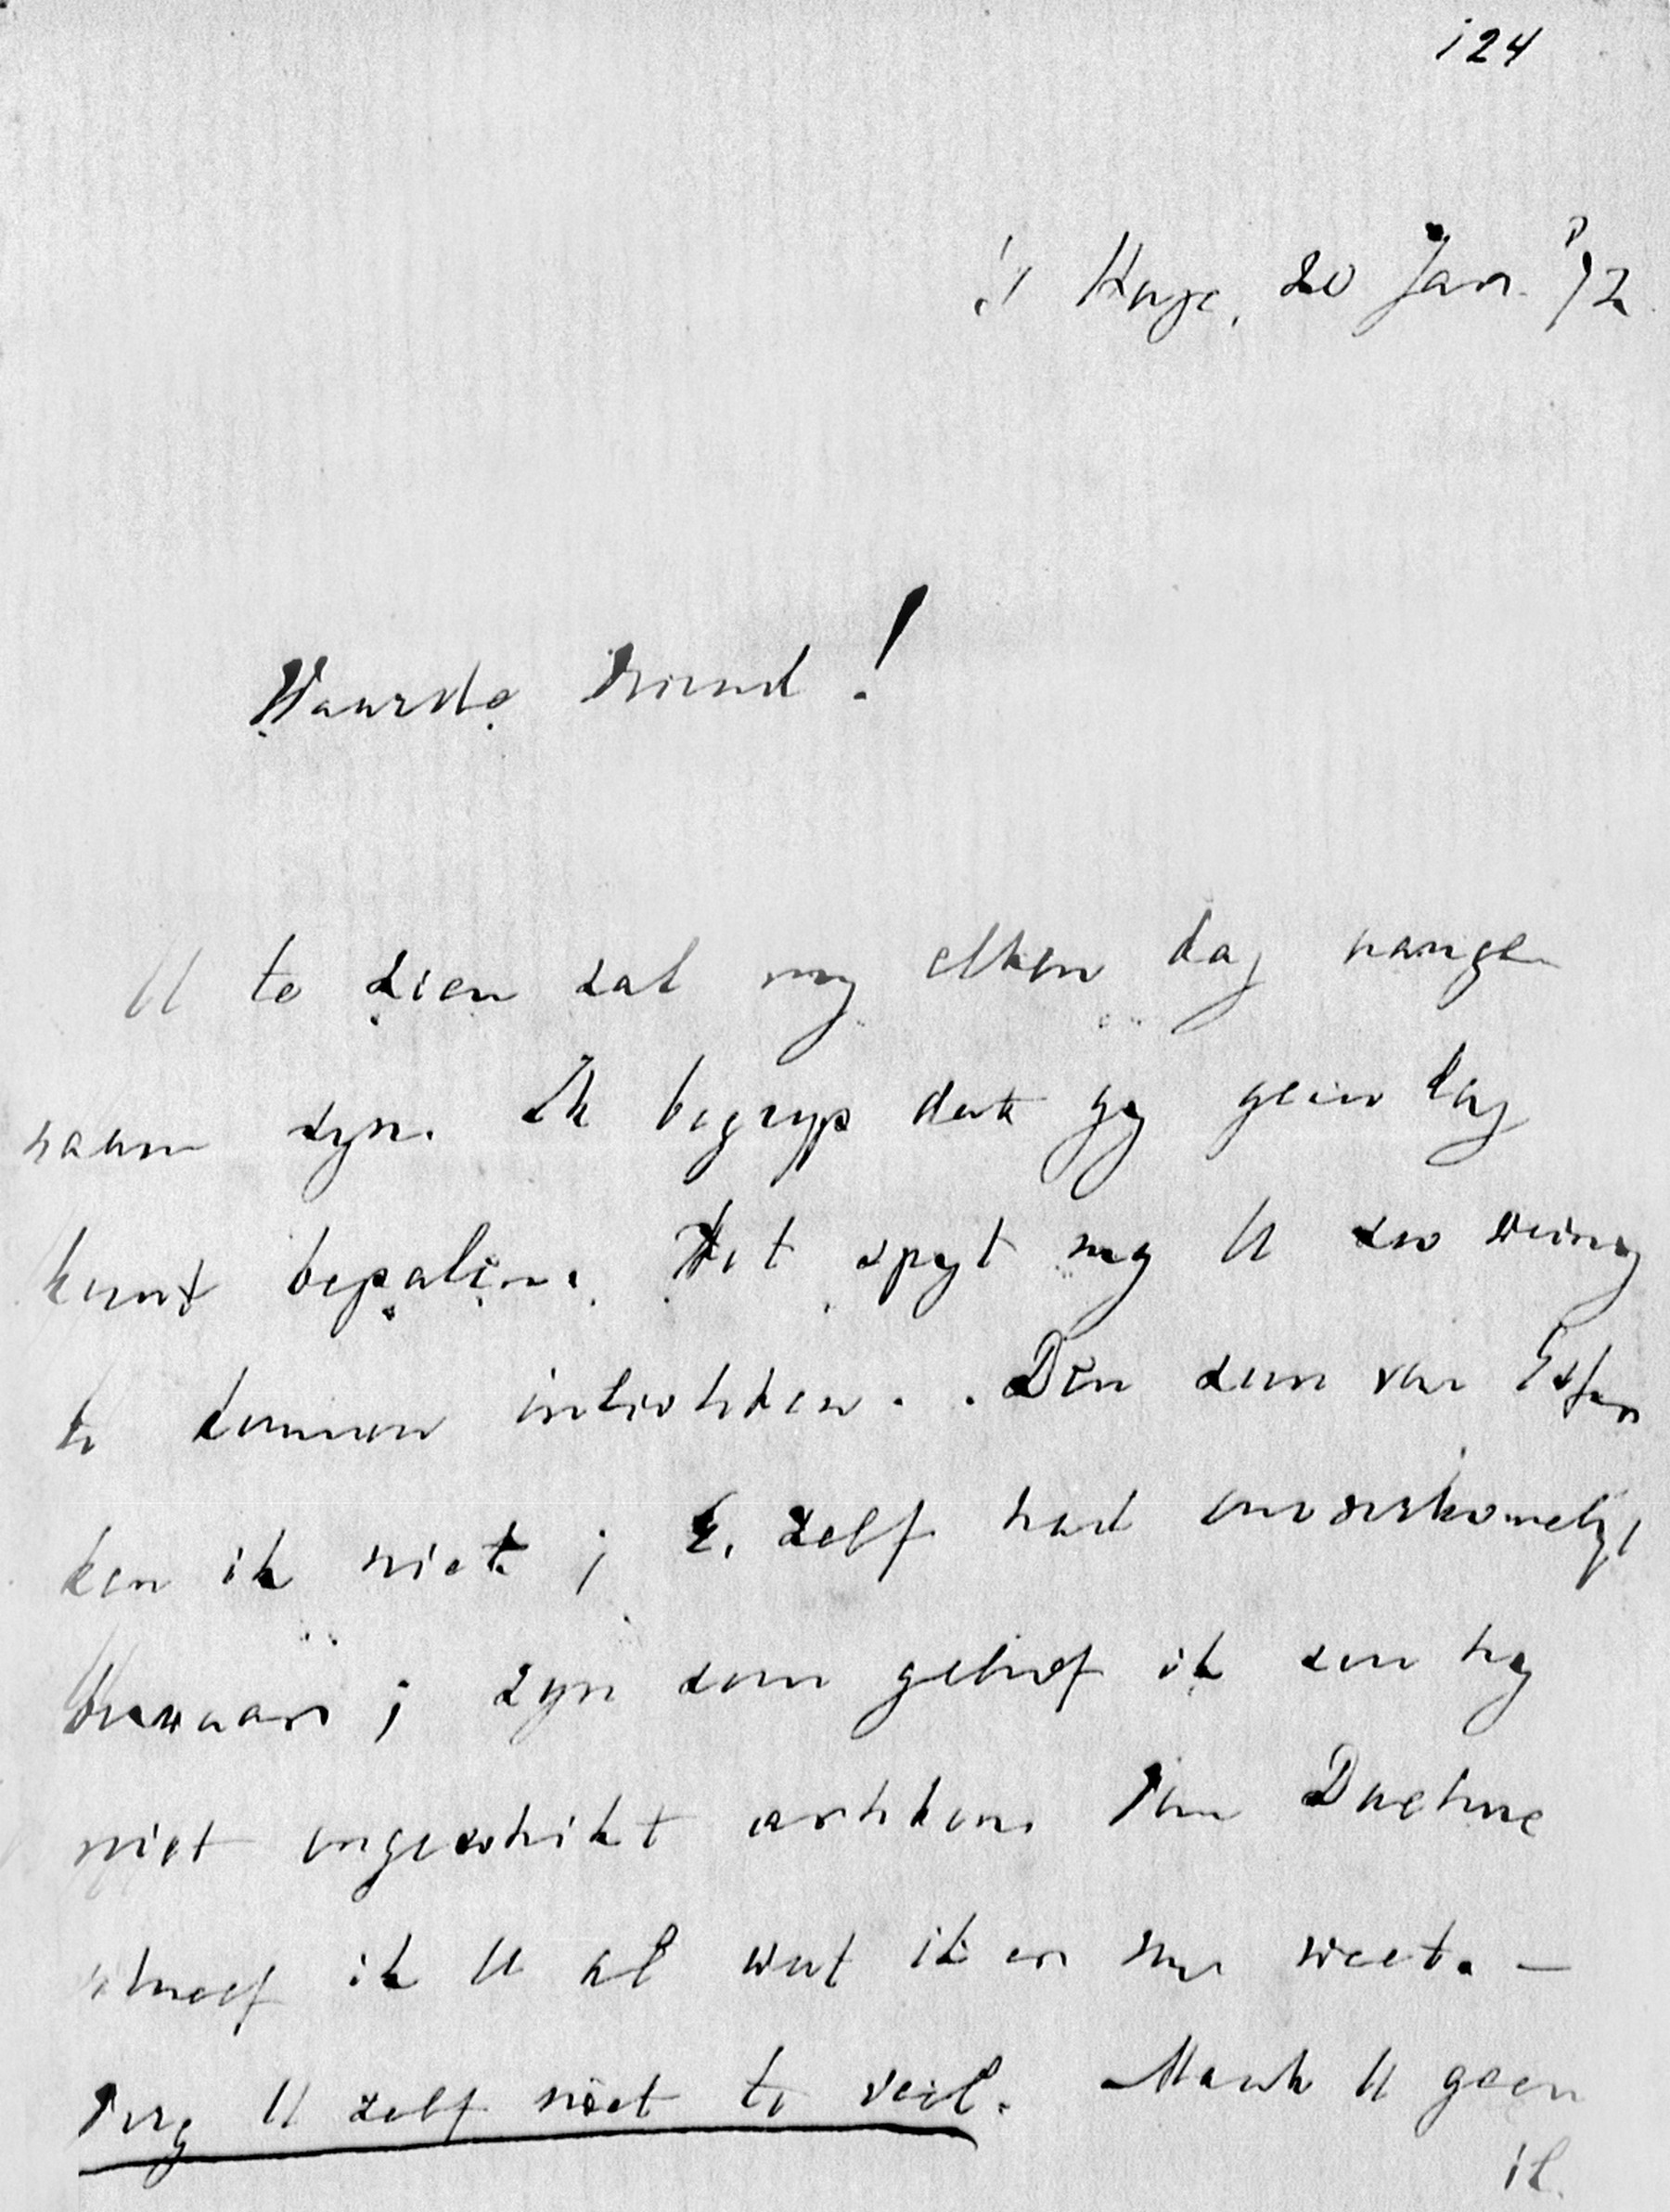 124
's Hage, 20 Jan. '72
Waarde Vriend!
U te zien zal my elken dag aange
naam zyn. Ik begryp dat gy geen dag
kunt bepalen. Het spyt my U zoo weinig
te kunnen inlichten. Den zoon van
ken ik niet; E. zelf had
; zyn zoon geloof ik zou hy
niet ongeschikt achten. Van
schreef ik U al wat ik er van weet. —
Verg U zelf niet te veel. Maak U geen
il